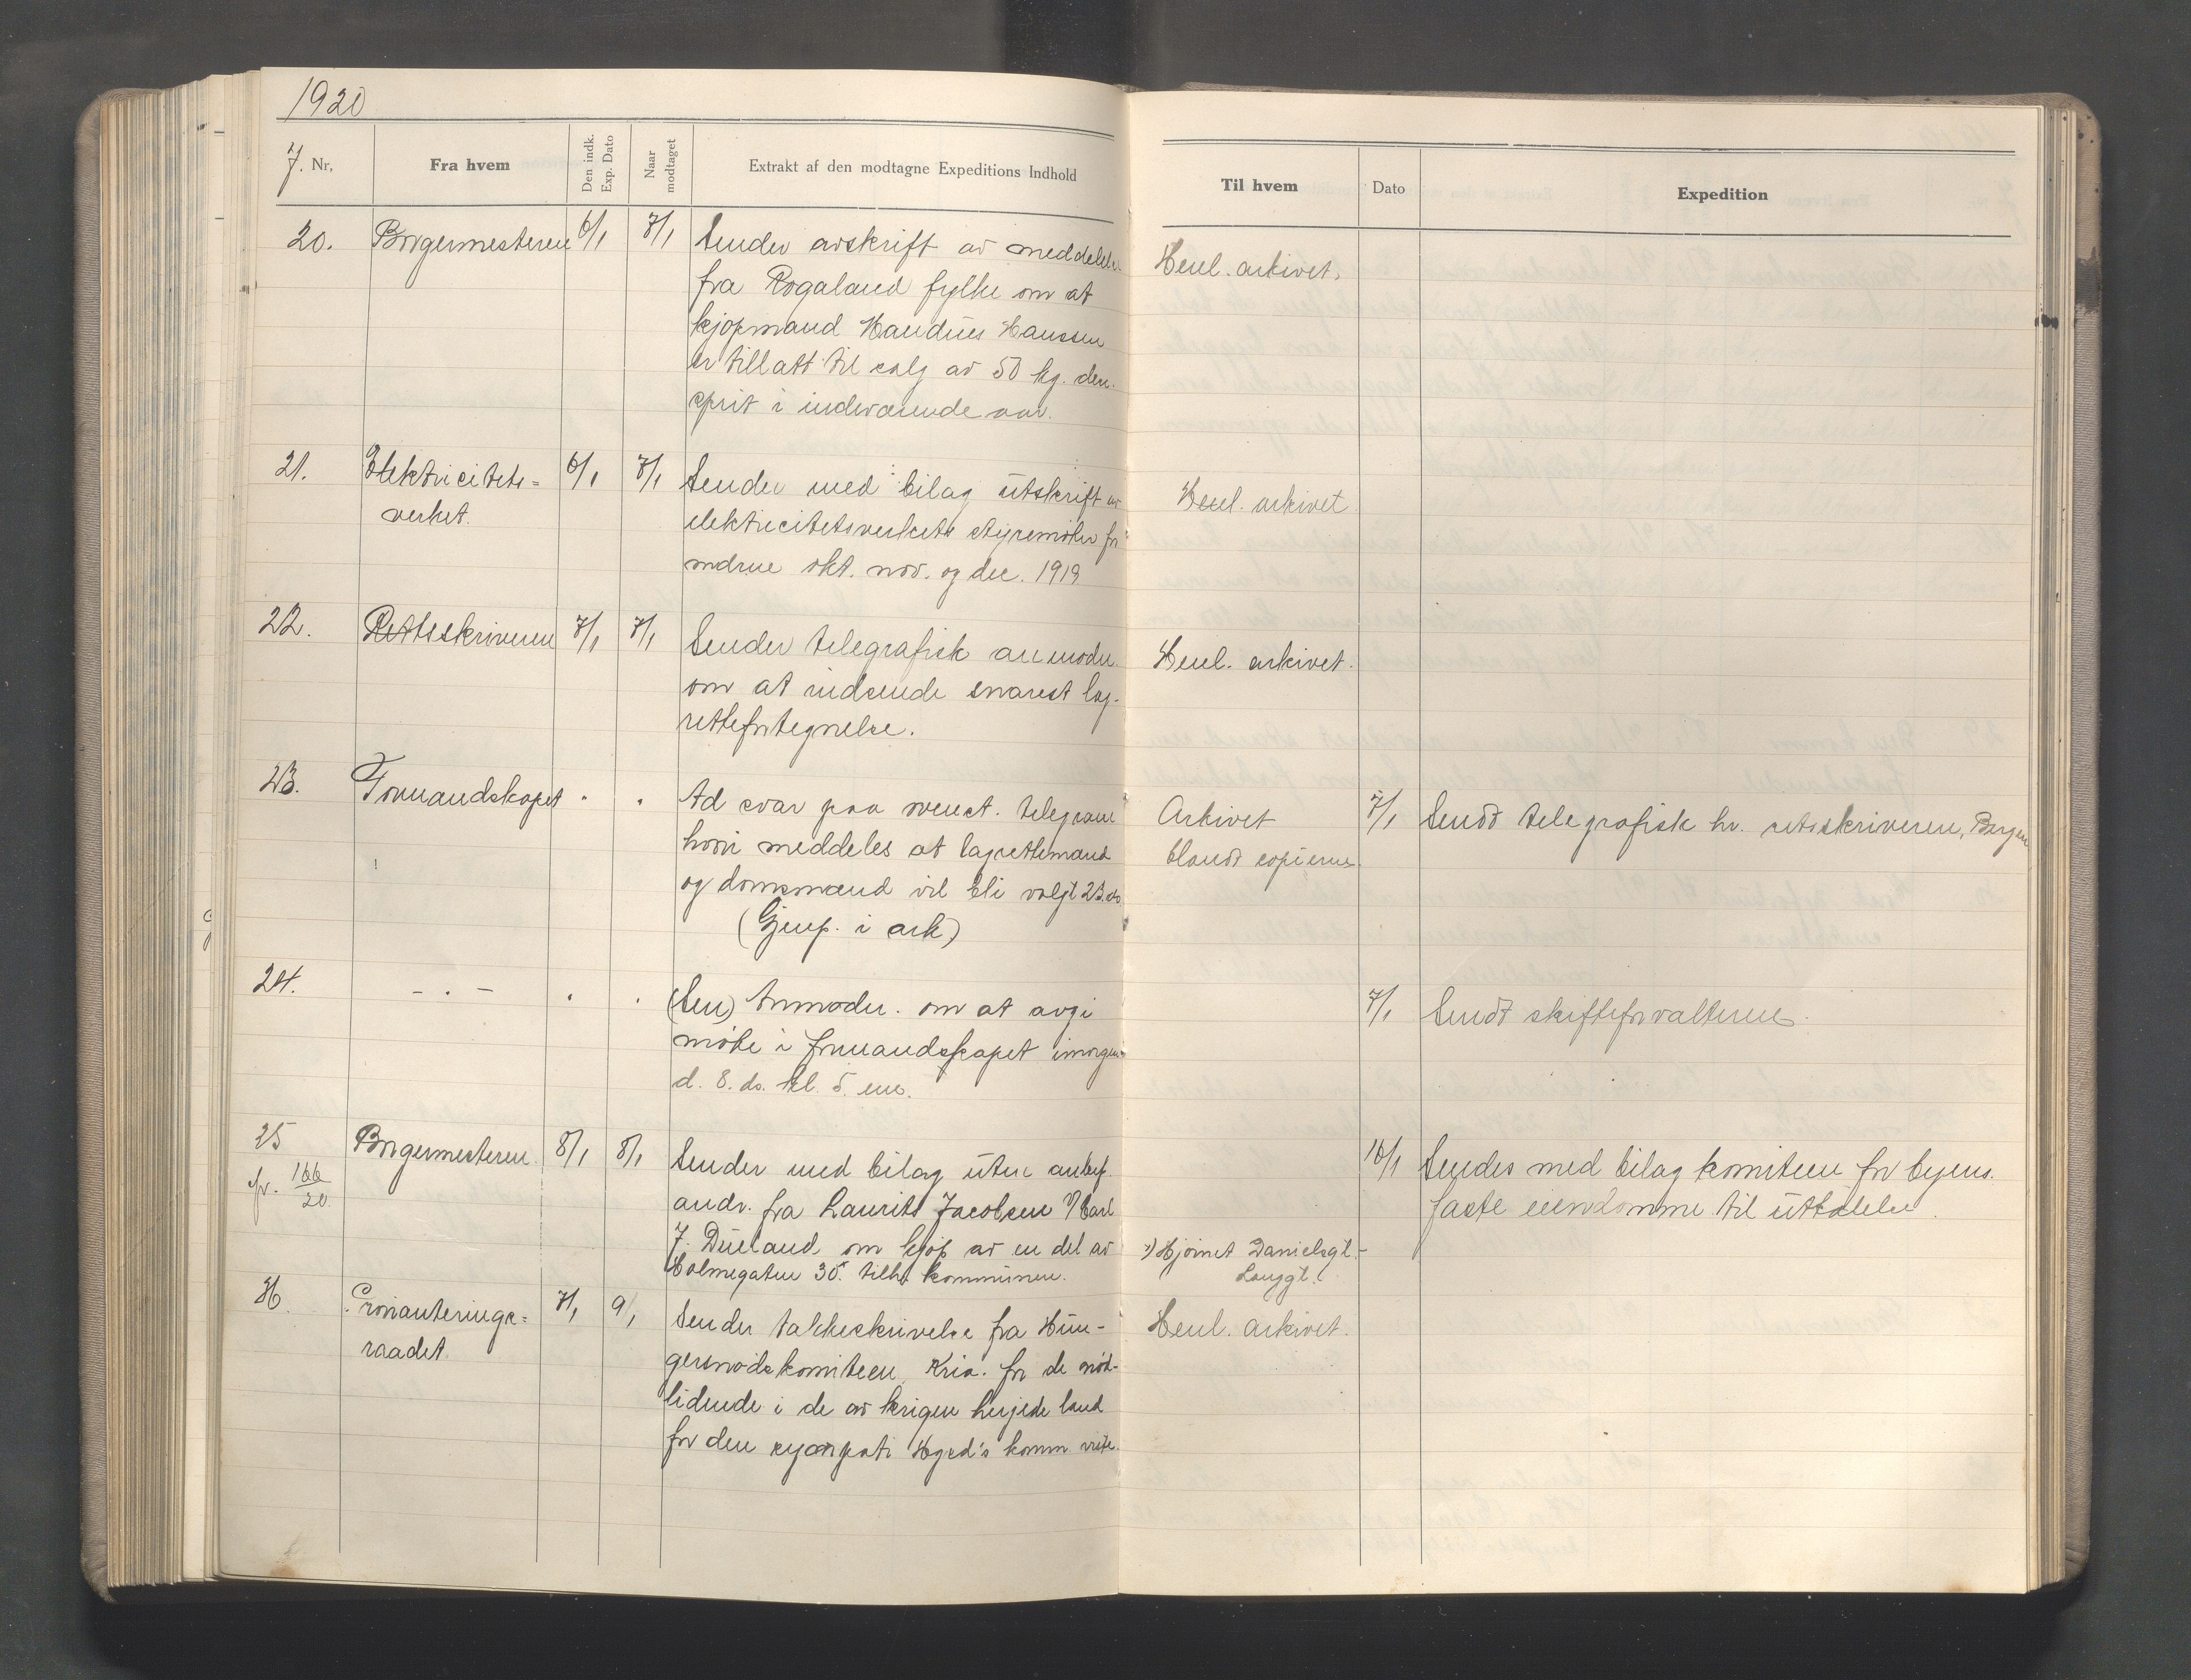 1920
J. Nr.
Fra hvem
Den indk. Exp. Dato
Naar modtaget
Extrakt af den modtagne Expeditions Indhold
Til hvem
Dato
Expedition
20. Borgermesteren 6/1 7/1 Sender avskrift av meddelelse
fra Rogaland fylke om at
kjøpmand Haudies Hanssen
er tillatt til salg av 50 kg. den.
sprit i indeværende aar.
Henl. arkivet.
21. Elektricitets= 6/1 7/1 Sender med bilag utskrift av
verket.
elektricitetsverkets styremøter for
mdrne okt. nov. og dec. 1919
Henl. arkivet.
22. Retsskriveren 7/1 7/1 Sender telegrafisk anmodn.
om at indsende snarest lag-
rettefortegnelse.
Henl. arkivet.
23. Formandskapet " " Ad svar paa ovenst. telegram
hvori meddeles at lagrettemænd
og domsmænd vil bli valgt 23. ds
(Gjenp. i ark)
Arkivet
blandt copierne
7/1 Sendt telegrafisk hr. retsskriveren, Bergen
24. - " - " " (Sen) Anmodn. om at avgi
møte i formandskapet imorgen
d. 8. ds. kl. 5. em.
7/1 Sendt skifteforvalteren.
25 Borgermesteren 8/1 8/1 Sender med bilag uten anbef.
fr. 166/20.
andr. fra Laurits Jacobsen &
J. Dueland om kjøp av en del av
Holmegaten 35. tilh. kommunen.
16/1 Sendes med bilag komiteen for byens
faste eiendomme til uttalelse.
Hjørnet Danielsgt. -
Langgt.
26. Provianterings= 7/1 9/1 Sender takkeskrivelse fra Hun-
raadet.
gersnødskomiteen, Kria. for de nød-
lidende i de av krigen herjede land
for den sympati Hgsd's komm. viste.
Henl. arkivet.